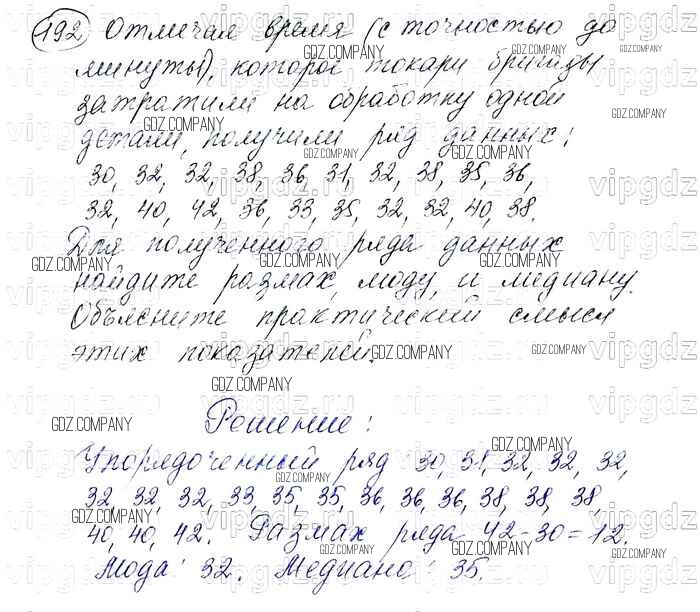 192 Отмечая время (с точностью до
минуты), которое токари бригады
затратили на обработку одной
детали, получили ряд данных:
30, 32, 32, 38, 36, 31, 32, 38, 35, 36,
32, 40, 42, 36, 33, 35, 32, 32, 40, 38.
Для полученного ряда данных
найдите размах, моду, и медиану.
Объясните практический смысл
этих показателей.
Решение:
Упорядоченный ряд 30, 31, 32, 32, 32,
32, 32, 32, 33, 35, 35, 36, 36, 36, 38, 38, 38,
40, 40, 42. Размах ряда 42-30=12.
Мода: 32. Медиано: 35.